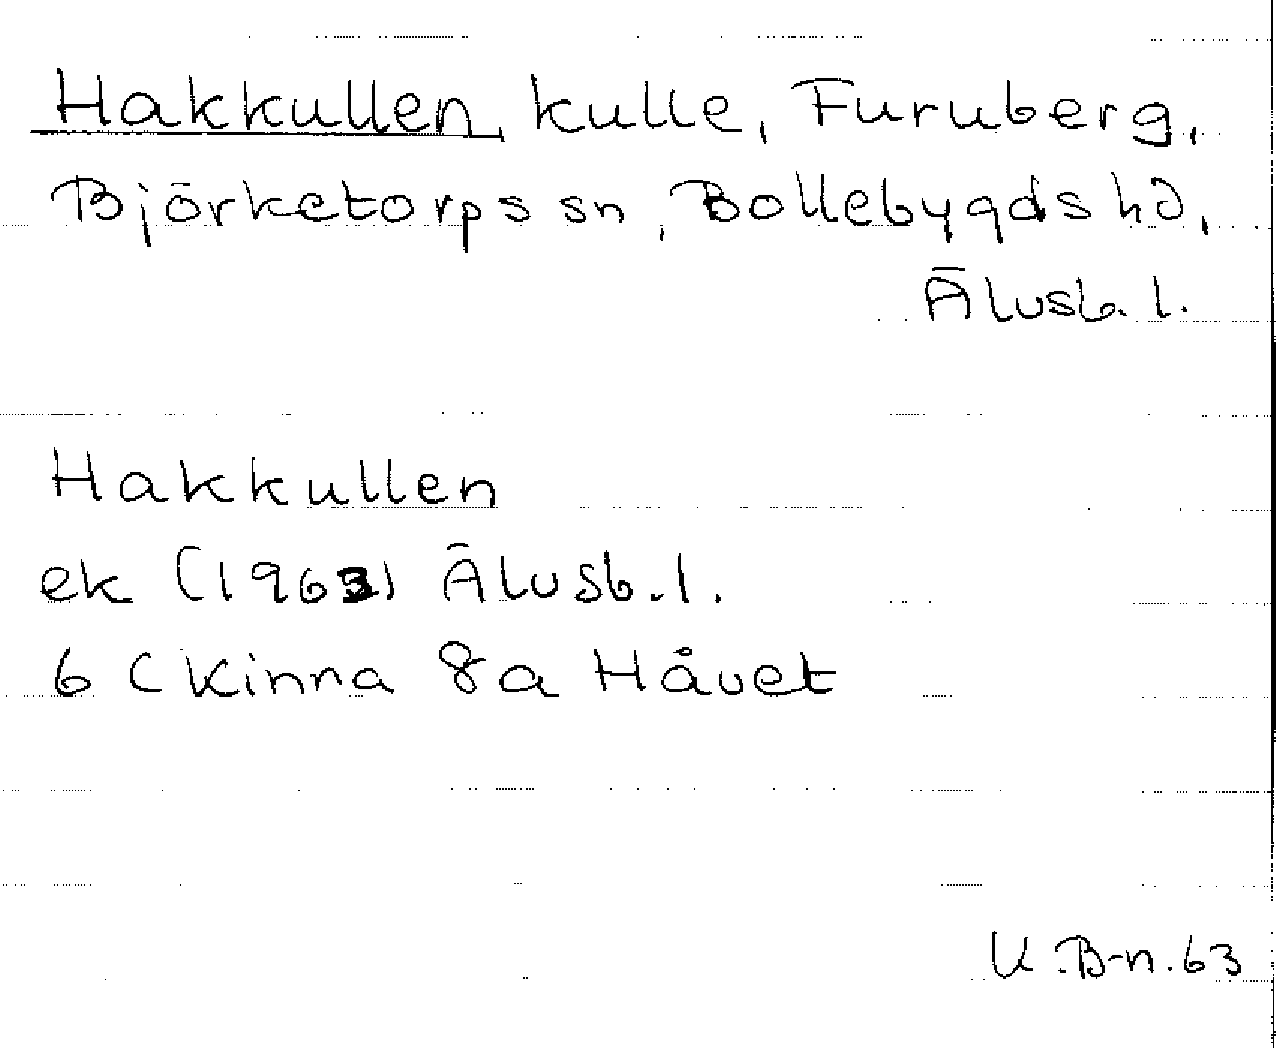 Hakkullen, kulle, Furuberg,
Björketorps sn, Bollebygds hd,
Älvsb. l.
Hakkullen
ek (1963) Älvsb. l.
6 C Kinna 8a Håvet
K. B-n. 63